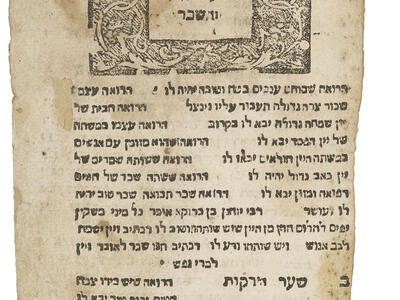 ושכר
הרואה שסוחט ענבים בטח ושובה יהיה לו הרואה עצמו
שכור צרה גדולה תעבור עליו וינצל הרואה חבית של
יין שמחה גדולה יבא לו בקרוב הרואה עצמו במשתה
של יין הפסד יבא לו הרואה שהוא מזומן עם אנשים
במשתה היין חולאים יבאו לו הרואה ששותה שמרים של
יין כאב גדול יהיה לו הרואה ששותה שכר של תמרים
רפואה ומזון יבא לו הרואה שכר תבואה שכר טוב יהיה
לו ועושר רבי יוחנן בן ברוקא אומר כל מיני משקין
יפים לחלום חוץ מן היין שיש שותהו וטוב לו דכתיב ויין ישמח
לבב אנוש ויש שותהו ורע לו דכתיב תנו שכר לאובד ויין
למרי נפש
ב שער הירקות הרואה שיש בידו
יבא לו